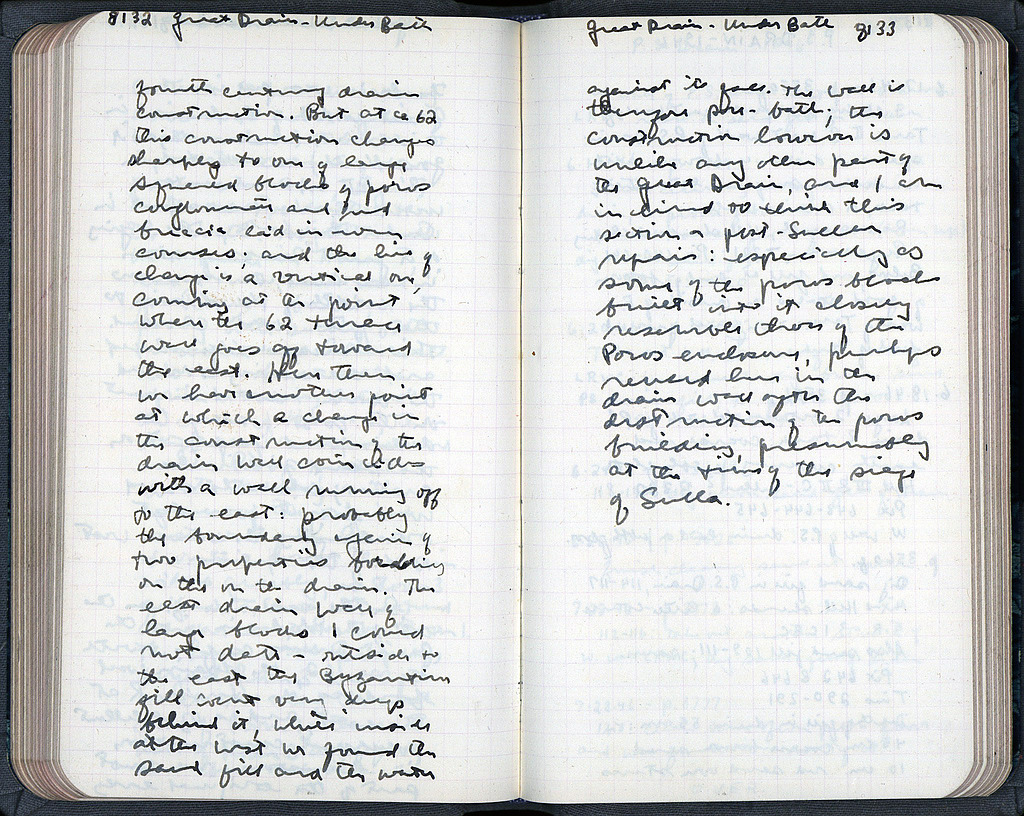 8132 Great Drain - Under Bath
fourth century drain
construction. But at ca 62
this construction changes
sharply to one of large
squared blocks of poros
conglomerate and
breccia laid in
courses; and the line of
change is a vertical one,
coming at the point
where the 62 terrace
wall goes off toward
the east. Here then
we have another point
at which a change in
the construction of the
drain wall coincides
with a wall running off
to the east: probably
the boundary again of
two properties bordering
on the drain. The
east drain wall of
large blocks I could
not date - outside to
the east the Byzantine
fill went very deep
behind it, while inside
at the west we found the
sand fill and the water
Great Drain - Under Bath 8133
against its face. The wall is
therefore pre-bath; the
construction however is
unlike any other part of
the Great Drain, and I am
inclined to think this
section a post-Sullan
repair: especially as
some of the poros blocks
built into it closely
resemble those of the
Poros enclosure, perhaps
reused here in the
drain wall after the
destruction of the poros
building, presumably
at the time of the siege
of Sulla.